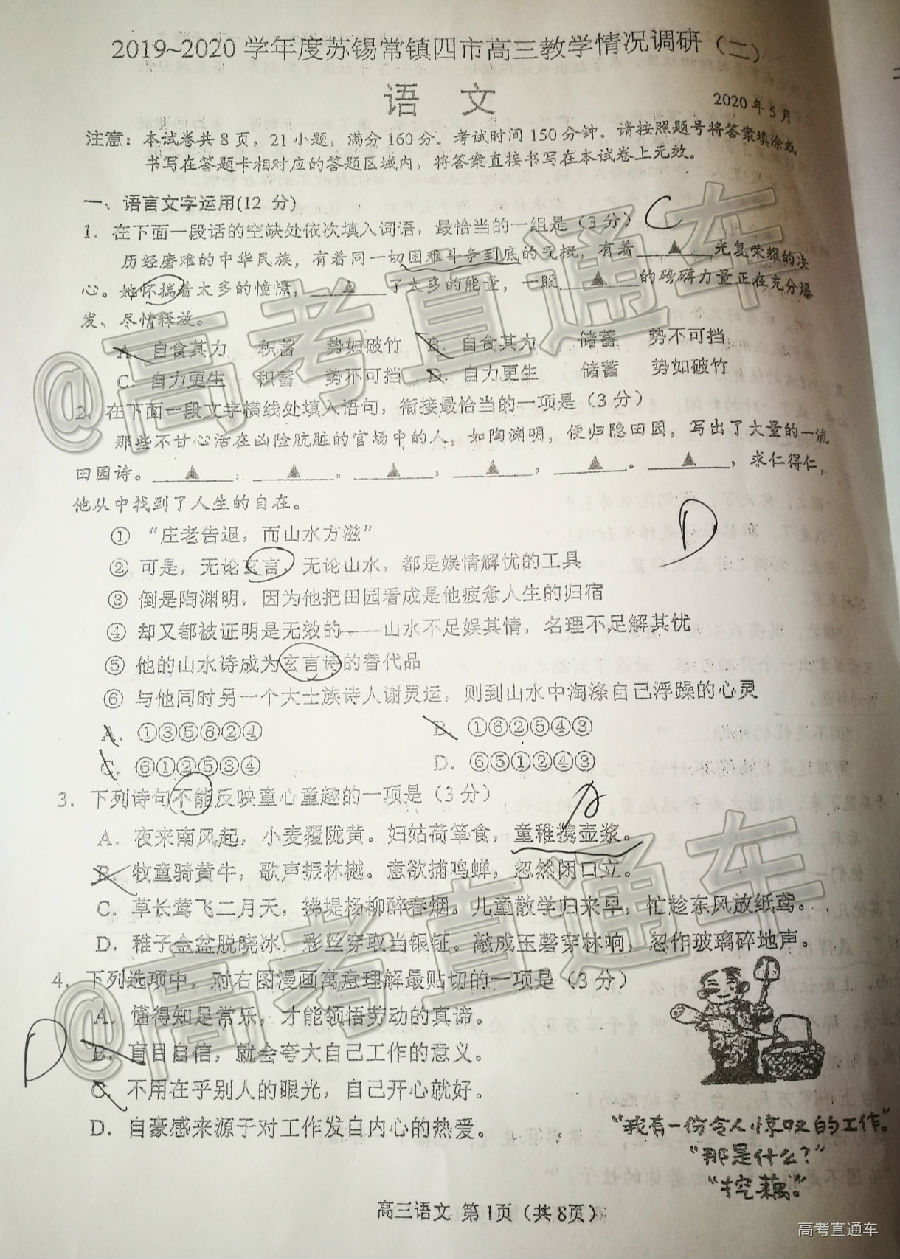 2019~2020学年度苏锡常镇四市高三教学情况调研（二）
语 文
2020年5月
注意：本试卷共8页，21小题，满分160分。考试时间150分钟。请按照题号将答案填涂或
书写在答题卡相对应的答题区域内，将答案直接书写在本试卷上无效。
一、语言文字运用(12 分)
1．在下面一段话的空缺处依次填入词语，最恰当的一组是（3分） C
历经磨难的中华民族，有着同一切困难斗争到底的气概，有着 ▲ 光复荣耀的决
心。她怀揣着太多的憧憬， ▲ 了太多的能量，一股 ▲ 的磅礴力量正在充分爆
发、尽情释放。
A．自食其力 积蓄 势如破竹 B．自食其力 储蓄 势不可挡
C．自力更生 积蓄 势不可挡 D．自力更生 储蓄 势如破竹
2．在下面一段文字横线处填入语句，衔接最恰当的一项是（3分）
那些不甘心活在凶险肮脏的官场中的人，如陶渊明，便归隐田园，写出了大量的一流
田园诗。 ▲ ， ▲ ， ▲ ， ▲ ， ▲ 。 ▲ ，求仁得仁，
他从中找到了人生的自在。
① “庄老告退，而山水方滋”
D
② 可是，无论玄言，无论山水，都是娱情解忧的工具
③ 倒是陶渊明，因为他把田园看成是他疲惫人生的归宿
④ 却又都被证明是无效的——山水不足娱其情，名理不足解其忧
⑤ 他的山水诗成为玄言诗的替代品
⑥ 与他同时另一个大士族诗人谢灵运，则到山水中淘涤自己浮躁的心灵
A．①③⑤⑥②④ B．①⑥②⑤④③
C．⑥①②⑤③④ D．⑥⑤①②④③
3．下列诗句不能反映童心童趣的一项是（3分） A
A．夜来南风起，小麦覆陇黄。妇姑荷箪食，童稚携壶浆。
B．牧童骑黄牛，歌声振林樾。意欲捕鸣蝉，忽然闭口立。
C．草长莺飞二月天，拂堤杨柳醉春烟。儿童散学归来早，忙趁东风放纸鸢。
D．稚子金盆脱晓冰，彩丝穿取当银钲。敲成玉磬穿林响，忽作玻璃碎地声。
4．下列选项中，对右图漫画寓意理解最贴切的一项是（3分）
A．懂得知足常乐，才能领悟劳动的真谛。
D
B．盲目自信，就会夸大自己工作的意义。
C．不用在乎别人的眼光，自己开心就好。
D．自豪感来源于对工作发自内心的热爱。
“我有一份令人惊叹的工作。”
“那是什么？”
“挖藕。”
高三语文 第1页（共8页）
@高考直通车
@高考直通车
高考直通车